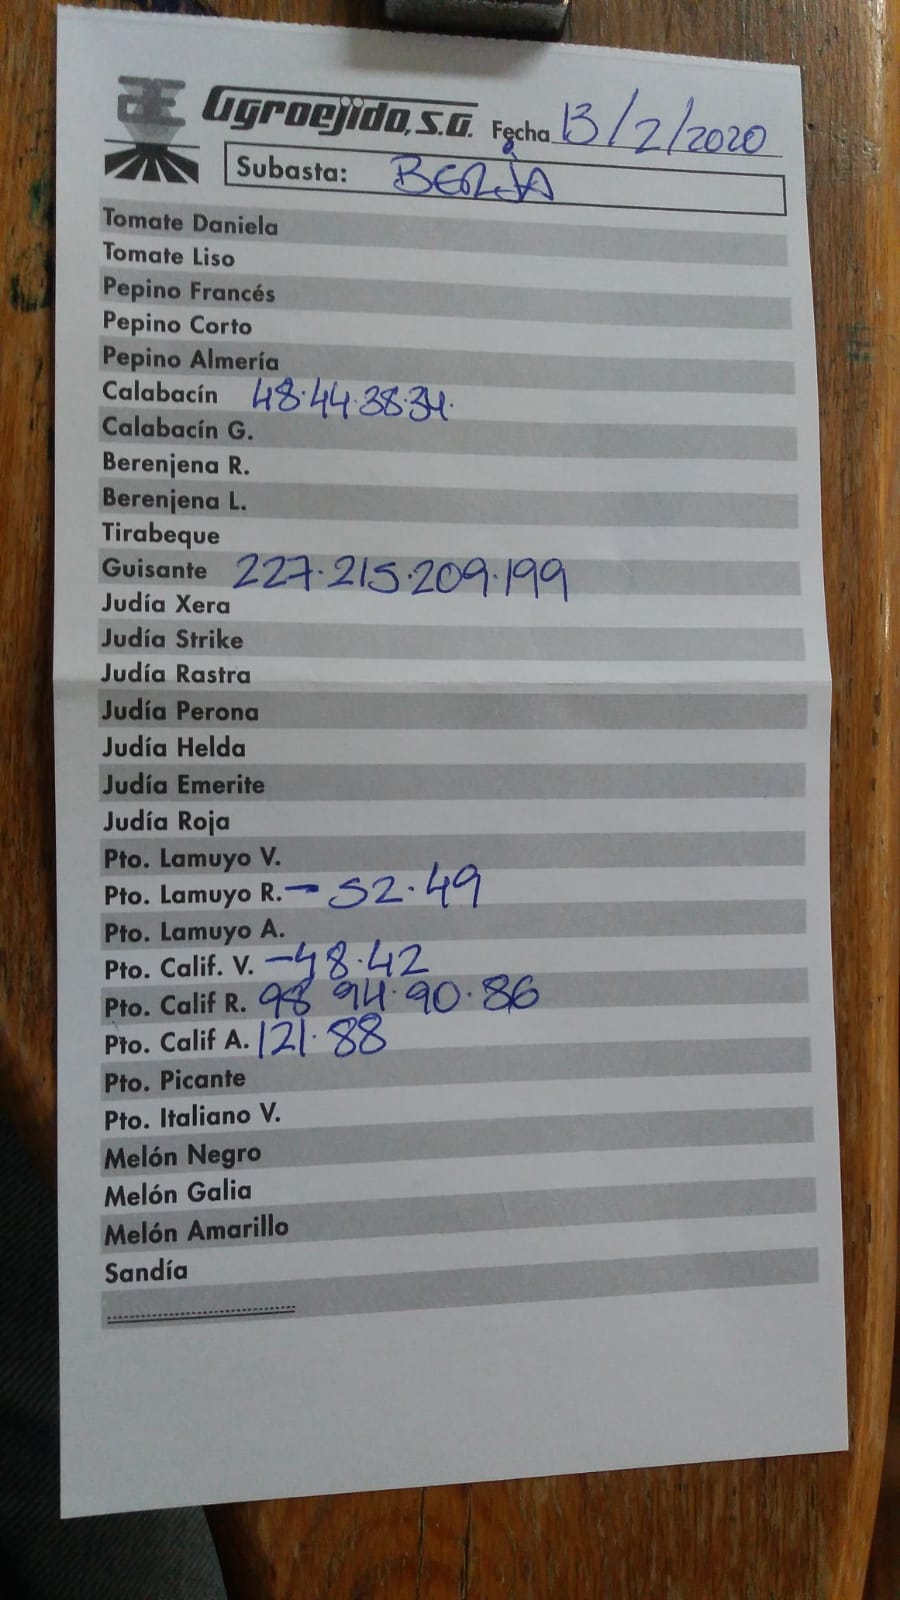 AE Agroejido, S.A. Fecha 13/2/2020
Subasta: BERJA
Tomate Daniela
Tomate Liso
Pepino Francés
Pepino Corto
Pepino Almería
Calabacín 48·44·38·34·
Calabacín G.
Berenjena R.
Berenjena L.
Tirabeque
Guisante 227·215·209·199
Judía Xera
Judía Strike
Judía Rastra
Judía Perona
Judía Helda
Judía Emerite
Judía Roja
Pto. Lamuyo V.
Pto. Lamuyo R. — 52·49
Pto. Lamuyo A.
Pto. Calif. V. — 48·42
Pto. Calif R. 98 94·90·86
Pto. Calif A. 121·88
Pto. Picante
Pto. Italiano V.
Melón Negro
Melón Galia
Melón Amarillo
Sandía